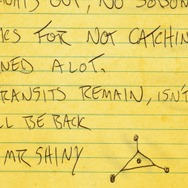 OUT, NO
FOR NOT CATCHIN
NED A LOT.
RANSITS REMAIN, ISN'T
LL BE BACK
MR SHINY